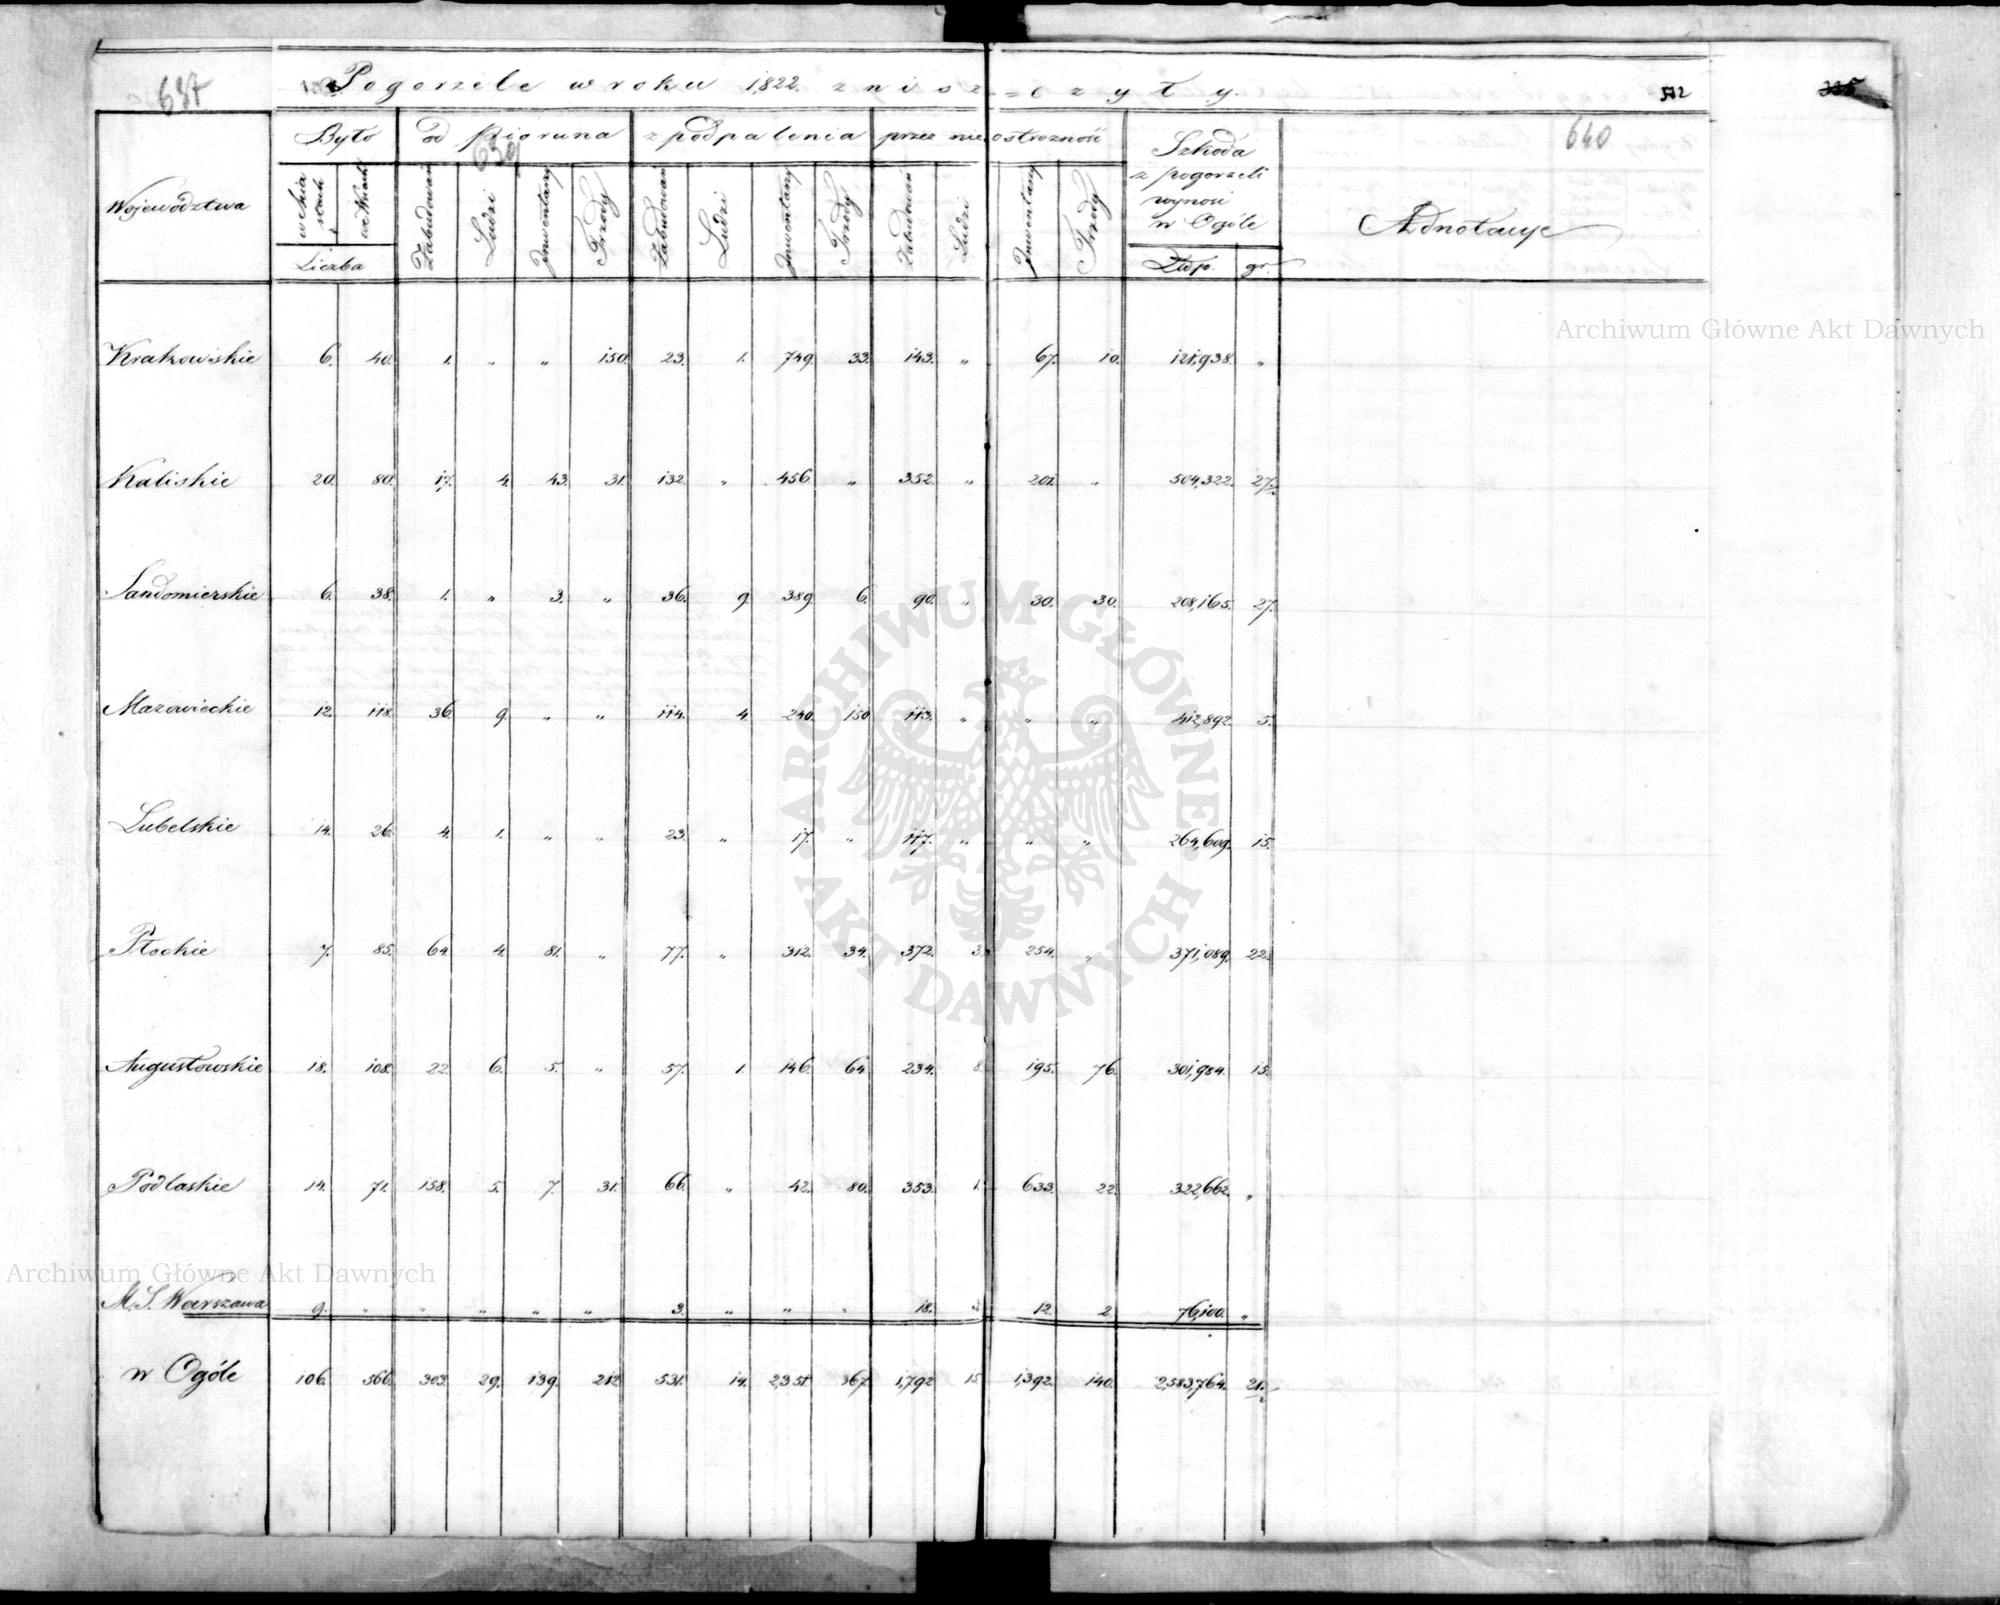 637
Pogorzele w roku 1822. zniszczyły.
512
335
640
639
Województwa
Było
od Pioruna
z podpalenia
przez nieostrozność
Szkoda z pogorzeli wynosi w Ogóle
Adnotacye
w Miastach
we Wsiach
Liczba
Zabudowań
Ludzi
Inwentarzy
Trzody
Zabudowań
Ludzi
Inwentarzy
Trzody
Zabudowań
Ludzi
Inwentarzy
Trzody
Złp.
gr.
Krakowskie 6. 40. 1. " " 150. 23. 1. 749. 33. 143. " 67. 10. 121,938. "
Kaliskie 20. 80. 17. 4. 43. 31. 132. " 456. " 352. " 201. " 504,322. 27.
Sandomierskie 6. 38. 1. " 3. " 36. 9. 389. 6. 90. " 30. 30. 208,165. 27.
Mazowieckie 12. 118. 36. 9. " " 114. 4. 240. 150 113. " " " 412,892. 5.
Lubelskie 14. 26. 4. 1. " " 23. " 17. " 117. " " " 264,609. 15.
Płockie 7. 85. 64. 4. 81. " 77. " 312. 34. 372. 3. 254. " 371,089. 22.
Augustowskie 18. 108. 22. 6. 5. " 57. 1. 146. 64. 234. 8. 195. 76. 301,984. 15.
Podlaskie 14. 71. 158. 5. 7. 31. 66. " 42. 80. 353. 1. 633. 22. 322,662. "
M. S. Warszawa 9. " " " " " 3. " " " 18. 3. 12. 2. 76,100. "
w Ogóle 106. 566. 303. 29. 139. 212. 531. 14. 2351. 367. 1,792 15. 1,392. 140. 2,583,764. 21.
Archiwum Główne Akt Dawnych
Archiwum Główne Akt Dawnych
ARCHIWUM GŁÓWNE
AKT DAWNYCH